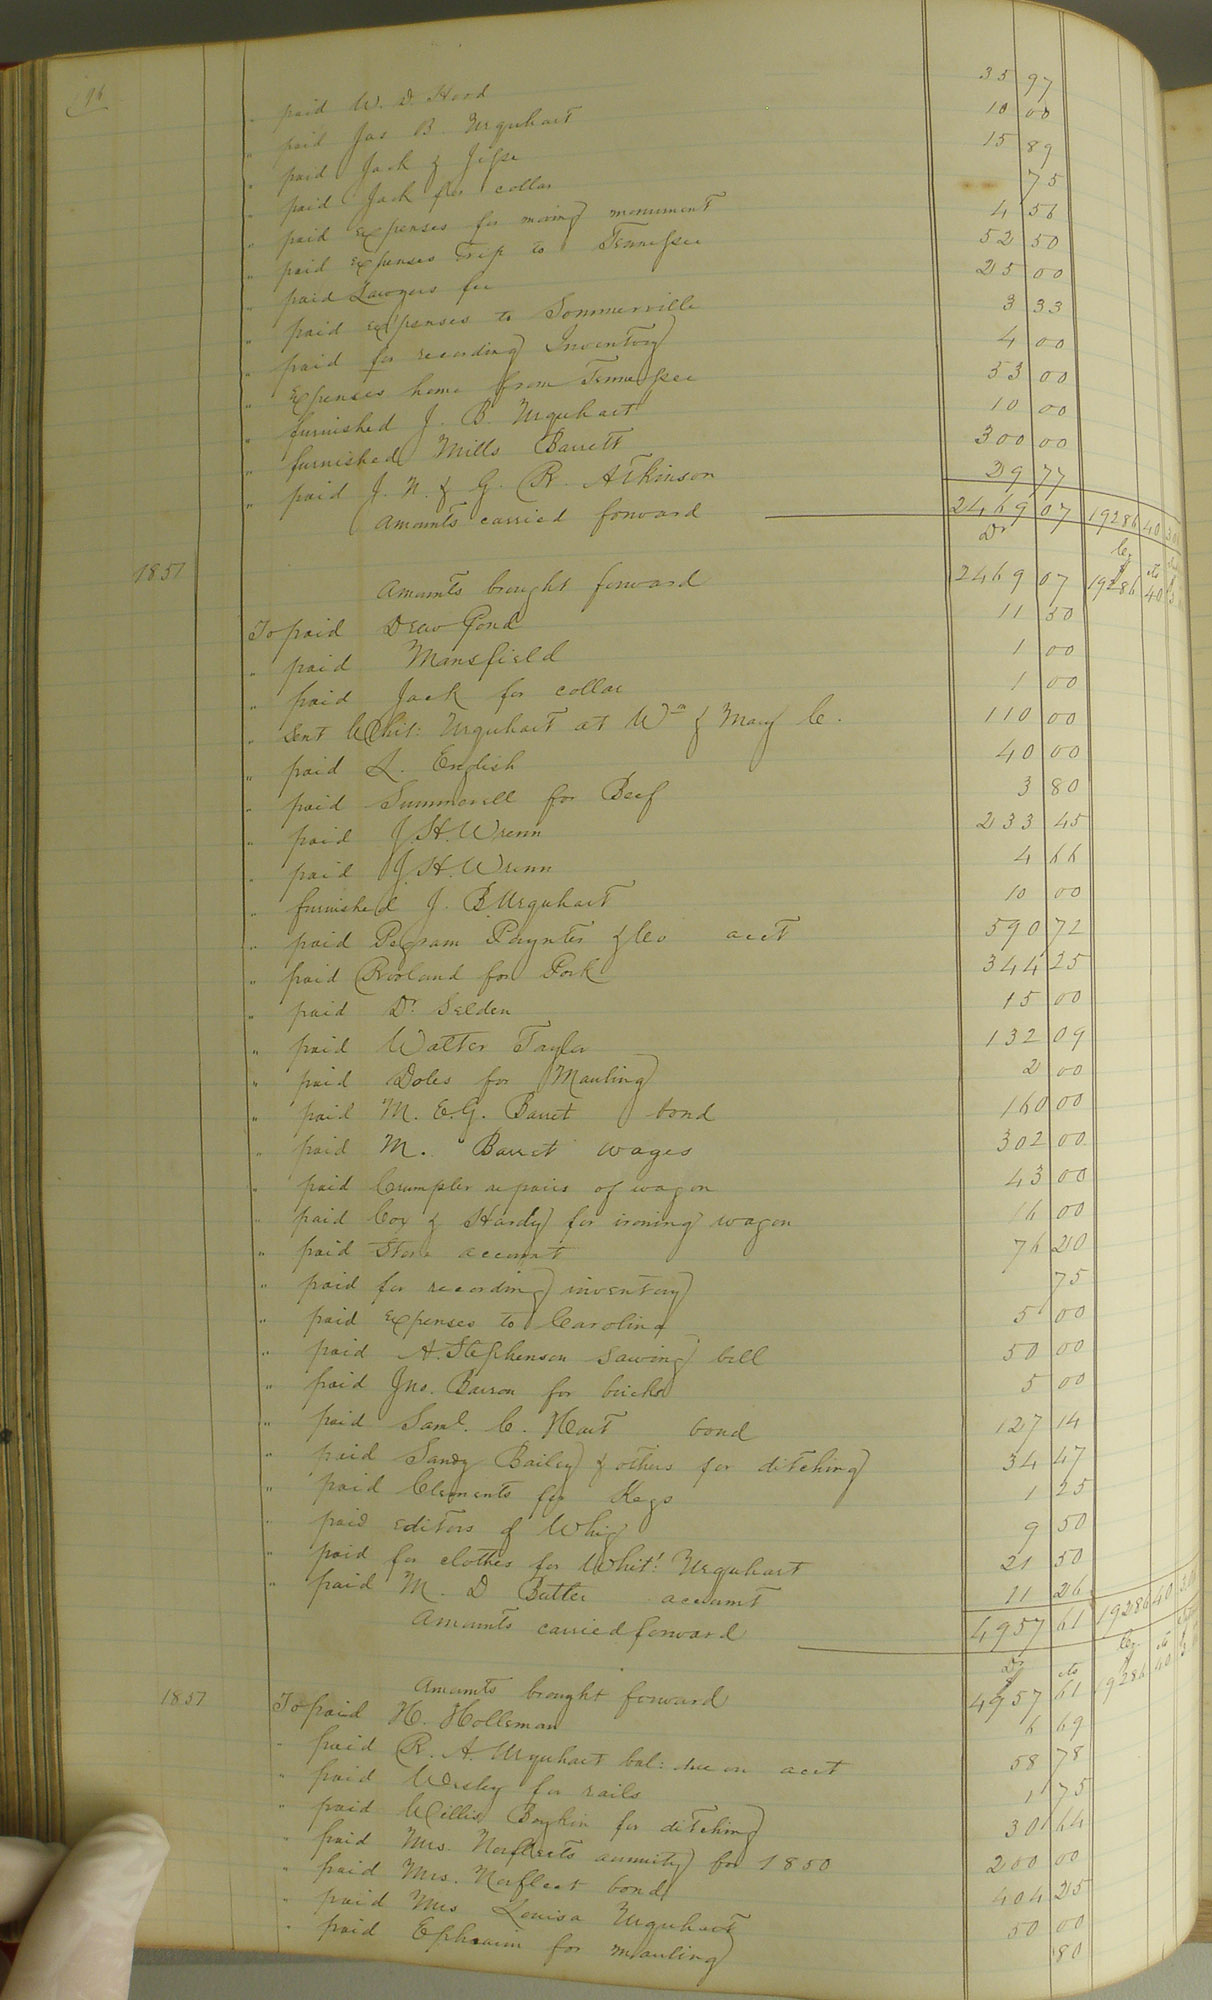 96
" paid W. D. Hood 35 97
" paid Jas B. Urquhart 10 00
" paid Jack & Jesse 15 89
" paid Jack for collar 75
" paid expenses for moving monument 4 56
" paid expenses trip to Tennessee 52 50
" paid Lawyers fee 25 00
" paid expenses to Sommerville 3 33
" paid for recording Inventory 4 00
" Expenses home from Tennessee 53 00
" furnished J. B. Urquhart 10 00
" furnished Mills Barrett 300 00
" paid J. N. & G. R. Atkinson 29 77
Amounts carried forward 2469 07 19286 40
Dr
1851 Amounts brought forward 2469 07 19286 40
To paid Drew Pond 11 50
" paid Mansfield 1 00
" paid Jack for collar 1 00
" Sent Whit: Urquhart at Wm & Mary C. 110 00
" paid L. English 40 00
" paid Summerell for Beef 3 80
" paid J. H. Wrenn 233 45
" paid J. H. Wrenn 4 66
" furnished J. B. Urquhart 10 00
" paid Pegram Paynter & Co acct 590 72
" paid Rowland for Pork 344 25
" paid Dr Selden 15 00
" paid Walter Taylor 132 09
" paid Doles for Mauling 2 00
" paid M. E. G. Barret bond 160 00
" paid M. Barret wages 302 00
" paid Crumpler repairs of wagon 43 00
" paid Cox & Hardy for ironing wagon 16 00
" paid Store account 76 20
" paid for recording inventory 75
" paid expenses to Carolina 5 00
" paid A. Stephenson Sawing bill 50 00
" paid Jno. Barron for bricks 5 00
" paid Saml. C. Hart bond 127 14
" paid Sandy Bailey & others for ditching 34 47
" paid Clements for Kegs 1 25
" paid editors of Whig 9 50
" paid for clothes for Whit! Urquhart 21 50
" paid M. D Butler account 11 26
Amounts carried forward 4957 61 19286 40
Dr cts
1851 Amounts brought forward 4957 61 19286 40
To paid H. Holleman 6 69
" paid R. A. Urquhart bal: due on acct 58 78
" paid Wesley for rails 1 75
" paid Willis Boykin for ditching 30 64
" paid Mrs. Norfleets annuity for 1850 200 00
" paid Mrs. Norfleet bond 404 25
" paid Mrs Louisa Urquhart 50 00
" paid Ephraim for mauling 80